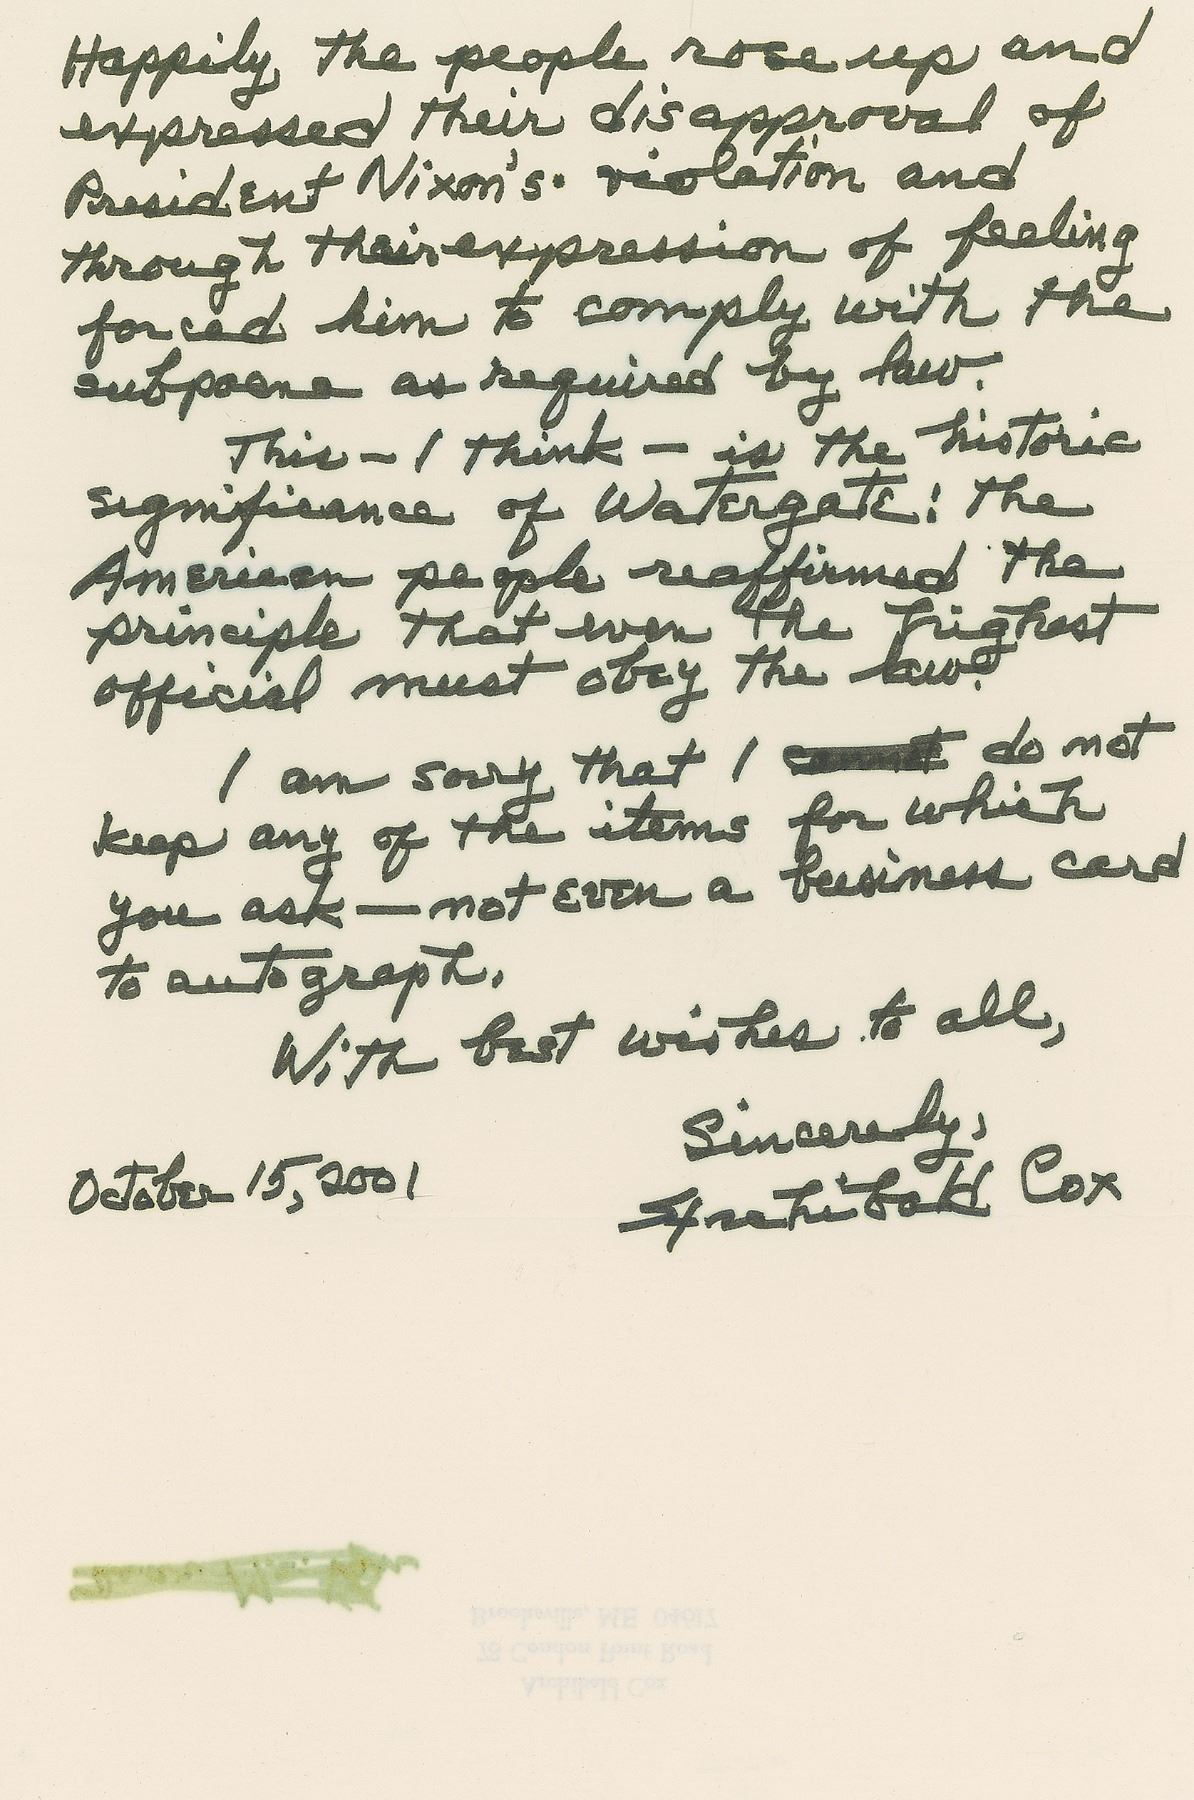 Happily, the people rose up and
expressed their disapproval of
President Nixon's violation and
through their expression of feeling
forced him to comply with the
subpoena as required by law.
This — I think — is the historic
significance of Watergate: the
American people reaffirmed the
principle that even the highest
official must obey the law.
I am sorry that I cannot do not
keep any of the items for which
you ask — not even a business card
to autograph.
With best wishes to all,
Sincerely,
October 15, 2001
Archibald Cox
Brooksville, ME 04617
78 Condon Point Road
Archibald Cox